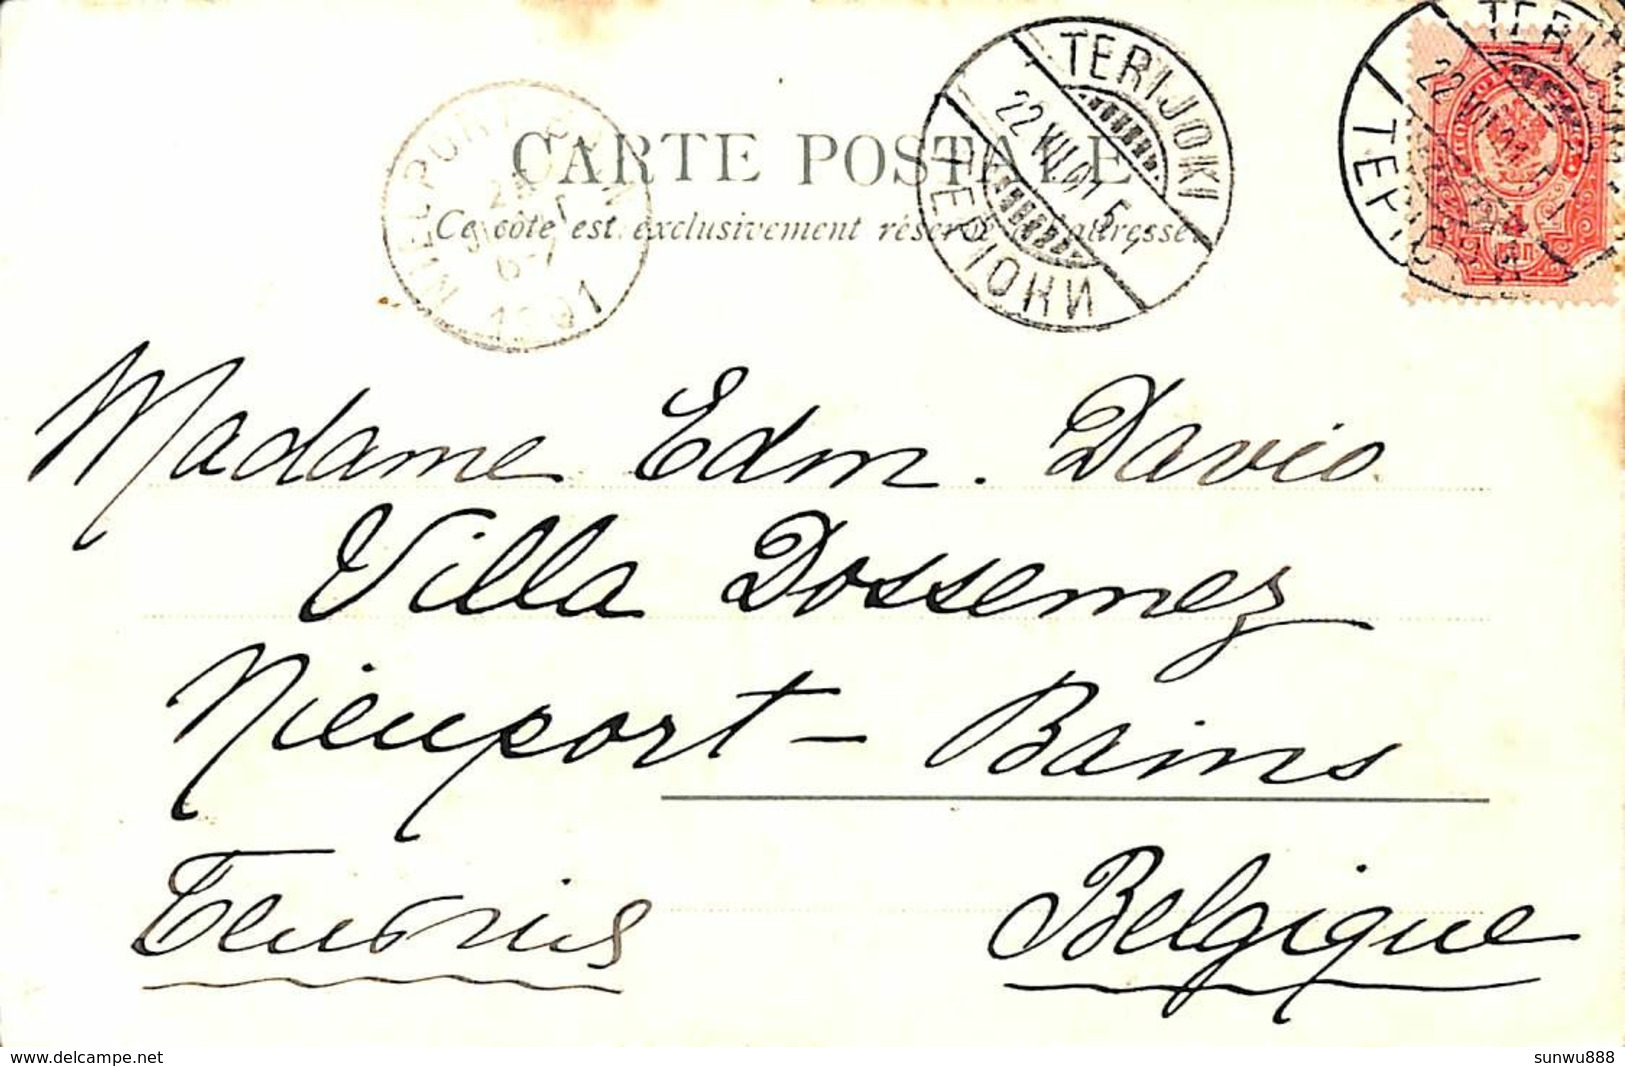 CARTE POSTALE
Ce côté est exclusivement réservé à l'adresse.
NIEUPORT
6-7
1901
TERIJOKI
22.VII.01 5
ТЕРІОКИ
TERIJOKI
ТЕРІОКИ
Madame Edm. David
Villa Dossemez
Nieuport - Bains
Бельгія
Belgique
www.delcampe.net
sunwu888